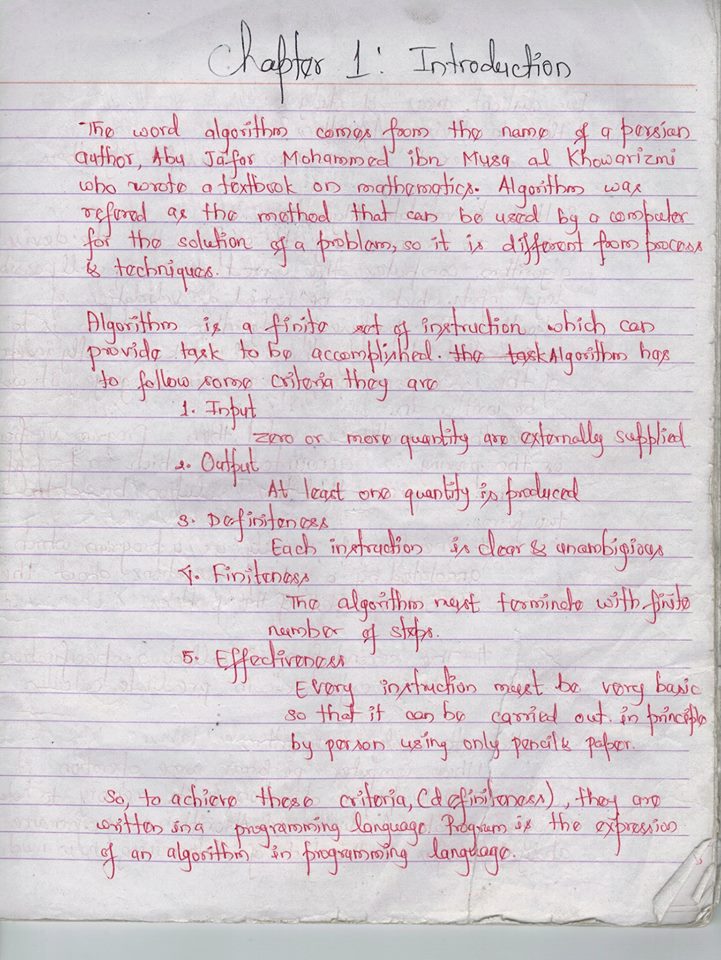 Chapter 1: Introduction
The word algorithm comes from the name of a persian
author, Abu Jafar Mohammed ibn Musa al Khowarizmi
who wrote a textbook on mathematics. Algorithm was
refered as the method that can be used by a computer
for the solution of a problem, so it is different from process
& techniques.
Algorithm is a finite set of instruction which can
provide task to be accomplished. the task Algorithm has
to follow some criteria they are
1. Input
zero or more quantity are externally supplied
2. Output
At least one quantity is produced
3. Definiteness
Each instruction is clear & unambigious
4. Finiteness
The algorithm must terminate with finite
number of steps.
5. Effectiveness
Every instruction must be very basic
so that it can be carried out in principle
by person using only pencil & paper.
So, to achieve these criteria, (definiteness), they are
written in a programming language. Program is the expression
of an algorithm in programming language.